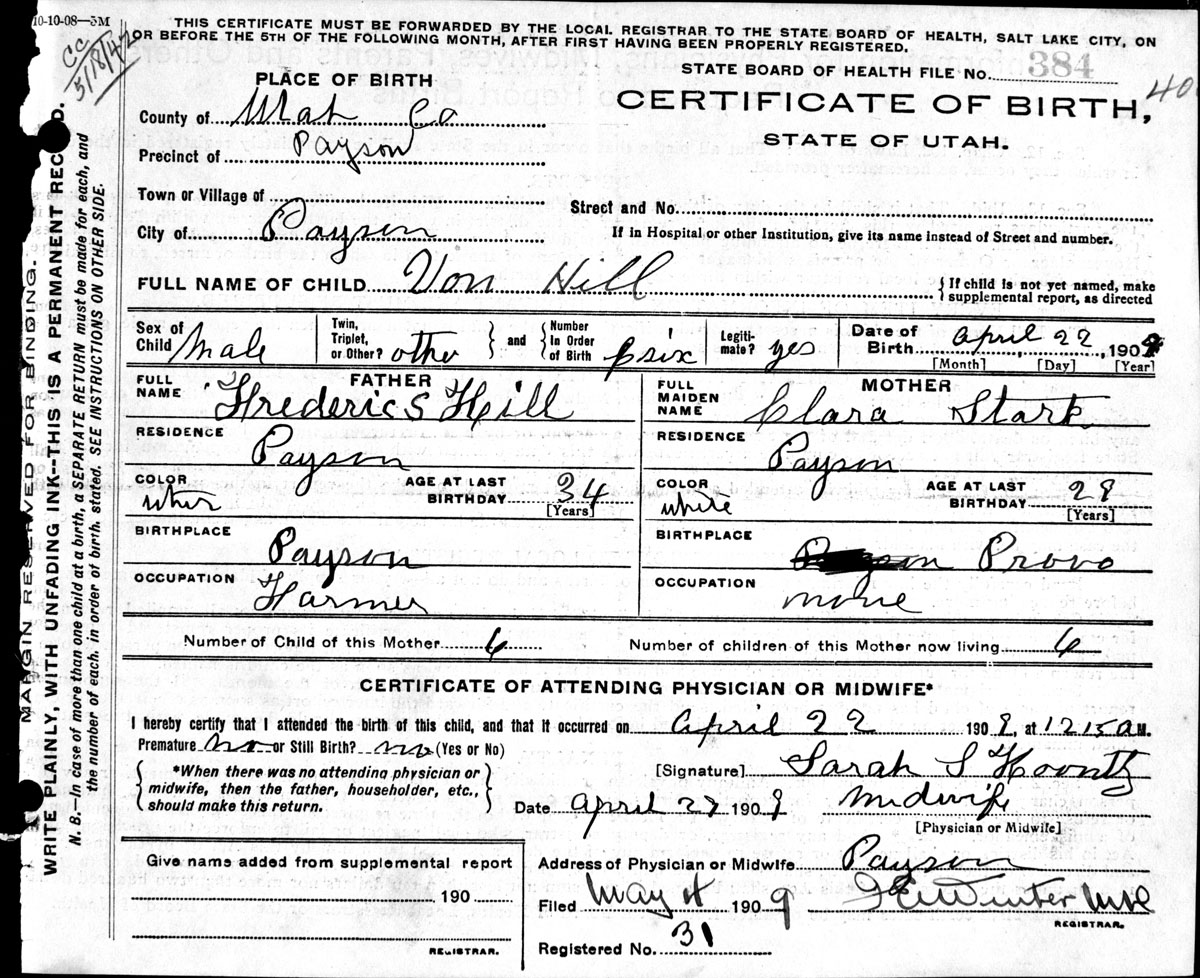 10-10-08—5M
THIS CERTIFICATE MUST BE FORWARDED BY THE LOCAL REGISTRAR TO THE STATE BOARD OF HEALTH, SALT LAKE CITY, ON
OR BEFORE THE 5TH OF THE FOLLOWING MONTH, AFTER FIRST HAVING BEEN PROPERLY REGISTERED.
CC
5/18/42
MARGIN RESERVED FOR BINDING.
WRITE PLAINLY, WITH UNFADING INK--THIS IS A PERMANENT RECORD.
N. B.—In case of more than one child at a birth, a SEPARATE RETURN must be made for each, and
the number of each, in order of birth, stated. SEE INSTRUCTIONS ON OTHER SIDE.
PLACE OF BIRTH
STATE BOARD OF HEALTH FILE No. 384
40
CERTIFICATE OF BIRTH,
STATE OF UTAH.
County of Utah Co
Precinct of Payson
Town or Village of
Street and No.
City of Payson
If in Hospital or other Institution, give its name instead of Street and number.
FULL NAME OF CHILD Von Hill
{ If child is not yet named, make
supplemental report, as directed
Sex of Child Male
Twin, Triplet, or Other? other } and { Number In Order of Birth six
Legitimate? yes
Date of Birth April 22, 1909
[Month] [Day] [Year]
FATHER
FULL NAME Frederic S Hill
MOTHER
FULL MAIDEN NAME Clara Stark
RESIDENCE Payson
RESIDENCE Payson
COLOR white
AGE AT LAST BIRTHDAY 34
[Years]
COLOR white
AGE AT LAST BIRTHDAY 29
[Years]
BIRTHPLACE Payson
BIRTHPLACE Provo
OCCUPATION Farmer
OCCUPATION none
Number of Child of this Mother 6
Number of children of this Mother now living 6
CERTIFICATE OF ATTENDING PHYSICIAN OR MIDWIFE*
I hereby certify that I attended the birth of this child, and that it occurred on April 22 1909, at 12 15 a M.
Premature no or Still Birth? no (Yes or No)
{ *When there was no attending physician or
midwife, then the father, householder, etc.,
should make this return. }
[Signature] Sarah S Koontz
Date April 27 1909
midwife
[Physician or Midwife]
Give name added from supplemental report
190
REGISTRAR.
Address of Physician or Midwife Payson
Filed May 4 1909
Winter
REGISTRAR.
Registered No. 31